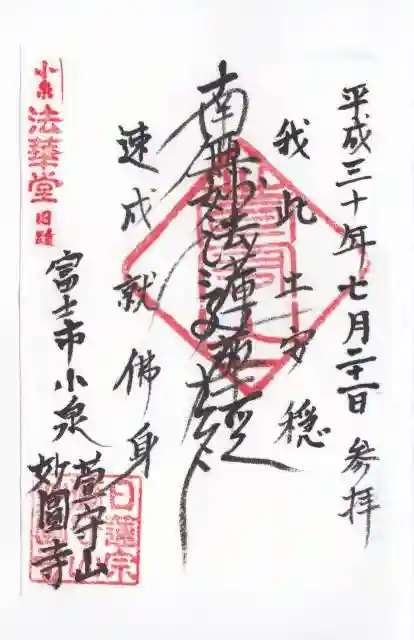 平成三十年七月二十一日 参拝
我此土安穏
南無妙法蓮華経
速成就佛身
小泉
法華堂
旧蹟
富士市小泉
萱守山
妙圓寺
日蓮宗